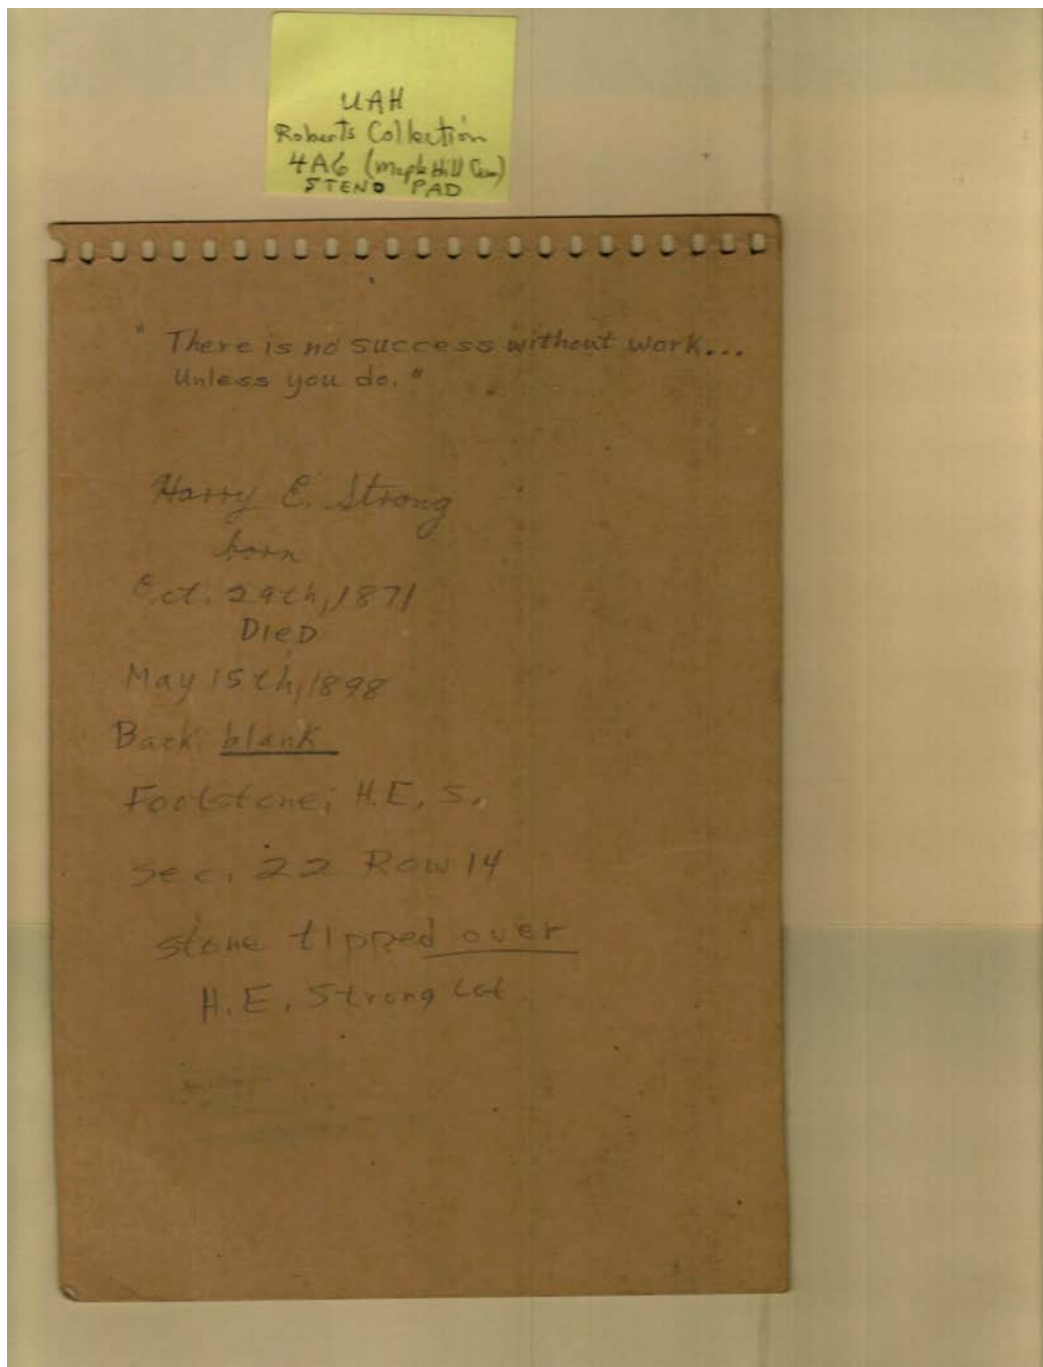 UAH
Roberts Collection
4A6 (Maple Hill Cem)
STENO PAD
" There is no success without work...
Unless you do. "
Harry E. Strong
born
Oct. 29th, 1871
DIED
May 15th, 1898
Back: blank
Footstone: H.E.S.
Sec. 22 Row 14
stone tipped over
H.E. Strong Lot